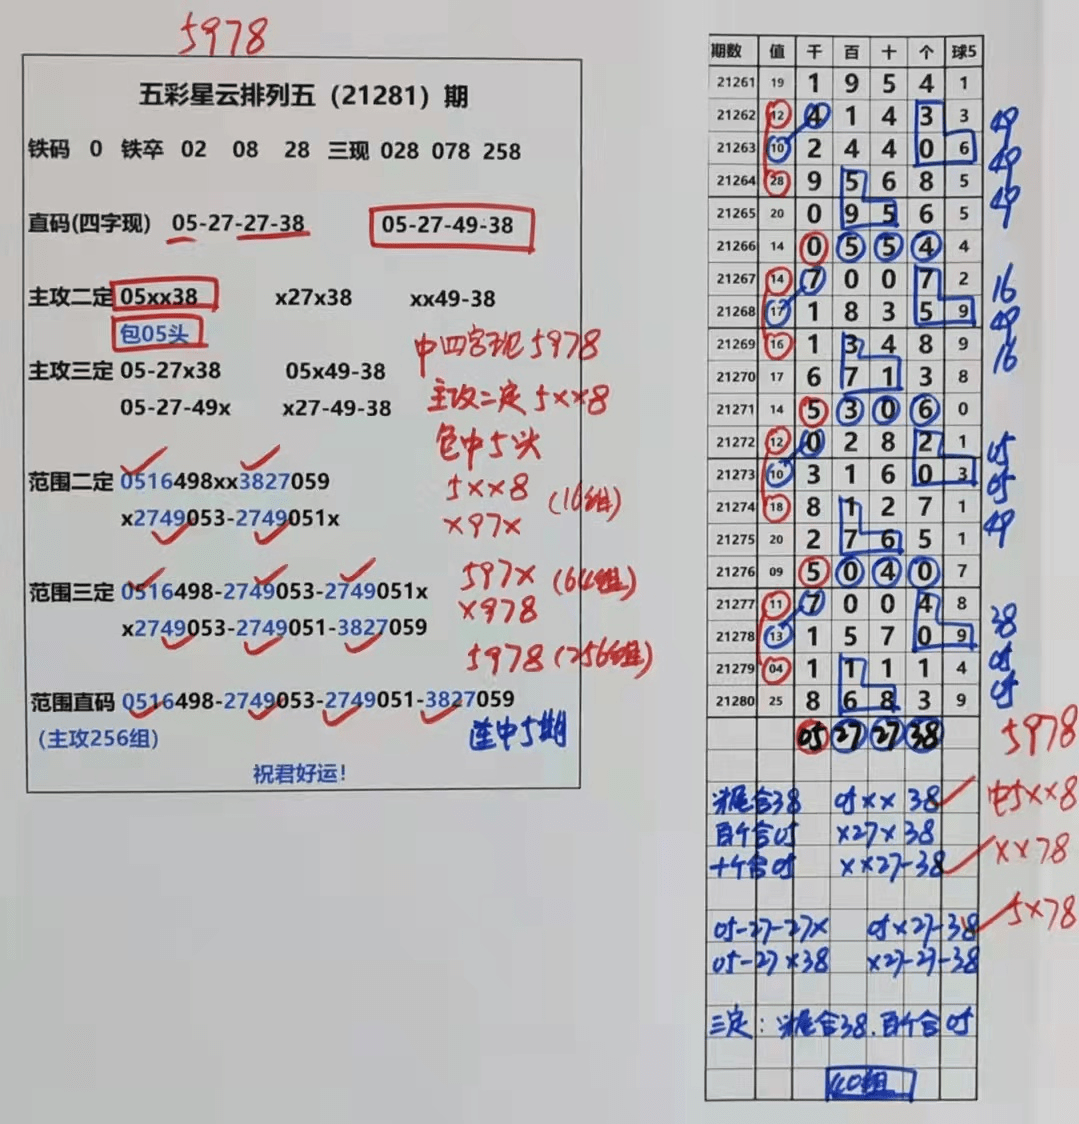 5978
五彩星云排列五（21281）期
铁码 0 铁卒 02 08 28 三现 028 078 258
直码(四字现) 05-27-27-38 05-27-49-38
主攻二定 05xx38 x27x38 xx49-38
包05头
中四字现5978
主攻三定 05-27x38 05x49-38
主攻二定5××8
05-27-49x x27-49-38
包中5头
范围二定 0516498xx3827059
5××8 (16组)
x2749053-2749051x
×97×
范围三定 0516498-2749053-2749051x
597× (64组)
x2749053-2749051-3827059
×978
5978 (256组)
范围直码 0516498-2749053-2749051-3827059
（主攻256组）
连中5期
祝君好运！
期数 值 千 百 十 个 球5
21261 19 1 9 5 4 1
21262 12 4 1 4 3 3 49
21263 10 2 4 4 0 6 49
21264 28 9 5 6 8 5 49
21265 20 0 9 5 6 5
21266 14 0 5 5 4 4
21267 14 7 0 0 7 2 16
21268 17 1 8 3 5 9 49
21269 16 1 3 4 8 9 16
21270 17 6 7 1 3 8
21271 14 5 3 0 6 0
21272 12 0 2 8 2 1 05
21273 10 3 1 6 0 3 05
21274 18 8 1 2 7 1 49
21275 20 2 7 6 5 1
21276 09 5 0 4 0 7
21277 11 7 0 0 4 8 38
21278 13 1 5 7 0 9 05
21279 04 1 1 1 1 4 05
21280 25 8 6 8 3 9
05 27 27 38 5978
头尾合38 05×× 38 中5××8
百个合05 ×27×38
十个合05 ××27-38 ××78
05-27-27× 05×27-38 5×78
05-27×38 ×27-27-38
三定：头尾合38.百个合05
40组